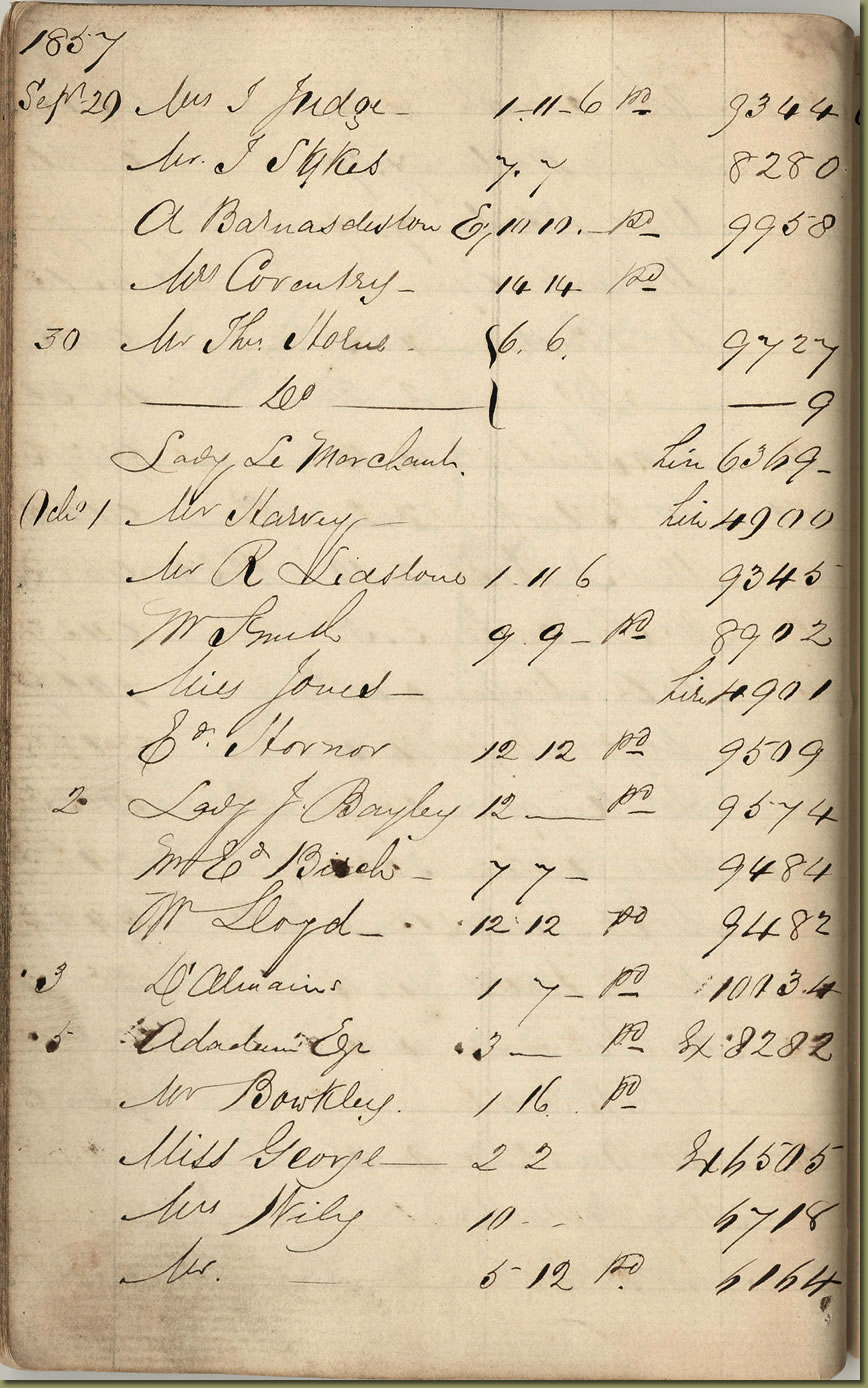 1857
Sepr 29 Mrs J Judge - 1-11-6 pd 9344
Mr. J Sykes 7.7 8280
A Barnasdiston Eq 10 10. - pd 9958
Mrs Coventry - 14 14 pd
30 Mr Ths. Horne - 6. 6. 9727
— Do — — 9
Lady Le Marchant. hire 6369-
Octr 1 Mr Harvey — hire 4900
Mr R Lidstone 1 11 6 9345
Mr Smith 9. 9 - pd 8902
Miss Jones - hire 4901
Ed. Hornor 12 12 pd 9509
2 Lady J. Bayley 12 — pd 9574
Mr Ed Birch - 7 7 - 9484
Mr Lloyd - 12 12 pd 9482
3 D'Almaine 1 7 - pd 10034
5 Adadam Eqr 3 — pd Ex 8282
Mr Bowkley. 1 16. pd
Miss George — 2 2 Ex 6505
Mrs Wily 10 - - 6718
Mr. — 5 12 pd. 6164